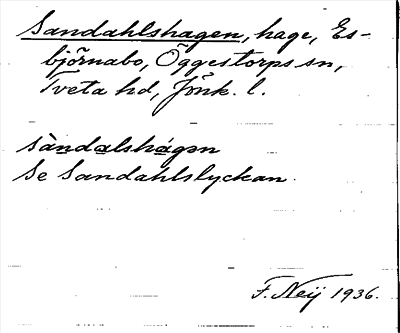 Sandahlshagen, hage, Es-
björnabo, Öggestorps sn,
Tveta hd, Jönk. l.
sàndalshágən
Se Sandahlslyckan.
F. Neij 1936.